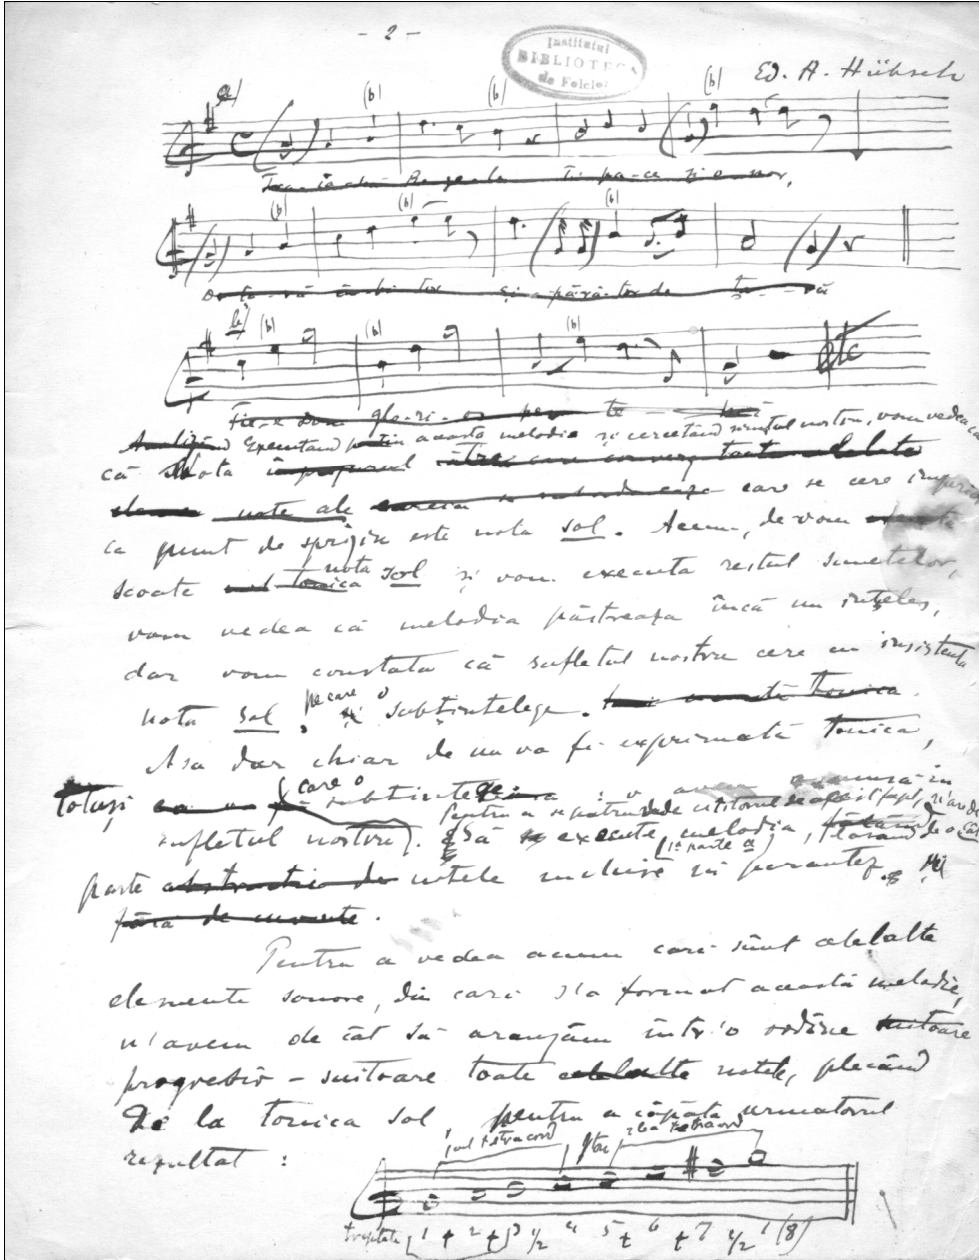 - 2 -
Institutul
BIBLIOTECA
de Folclor
Ed. A. Hübsch
a) (b) (b) (b)
Trăiască Regele În pace și onor,
(b) (b) (b)
De țară iubitor Și-apărător de țară
b) (b) (b) (b)
Fie Domn glorios
etc
Executând puțin această melodie și cercetând simțul nostru, vom vedea
că nota care se cere
ca punct de sprijin este nota sol. Acum, de vom
scoate nota sol și vom executa restul sunetelor,
vom vedea că melodia păstrează încă un înțeles,
dar vom constata că sufletul nostru cere cu insistență
nota sol, pe care o subtințelege.
Așa dar chiar de nu va fi exprimată tonica,
totuși care o
sufletul nostru. Să execute melodia,
(1ª parte a)
parte notele incluse în parantez.
fără de cuvinte.
Pentru a vedea acum cari sînt celelalte
elemente sonore, din cari s'a format această melodie,
n'avem de cât să aranjăm într'o ordine suitoare
progresiv - suitoare toate celelalte notele, plecând
de la tonica sol, pentru a căpăta urmatorul
rezultat :
1ul tetracord 2lea tetracord
treptele 1 t 2 t 3 ½ 4 5 t 6 t 7 ½ 1 (8)